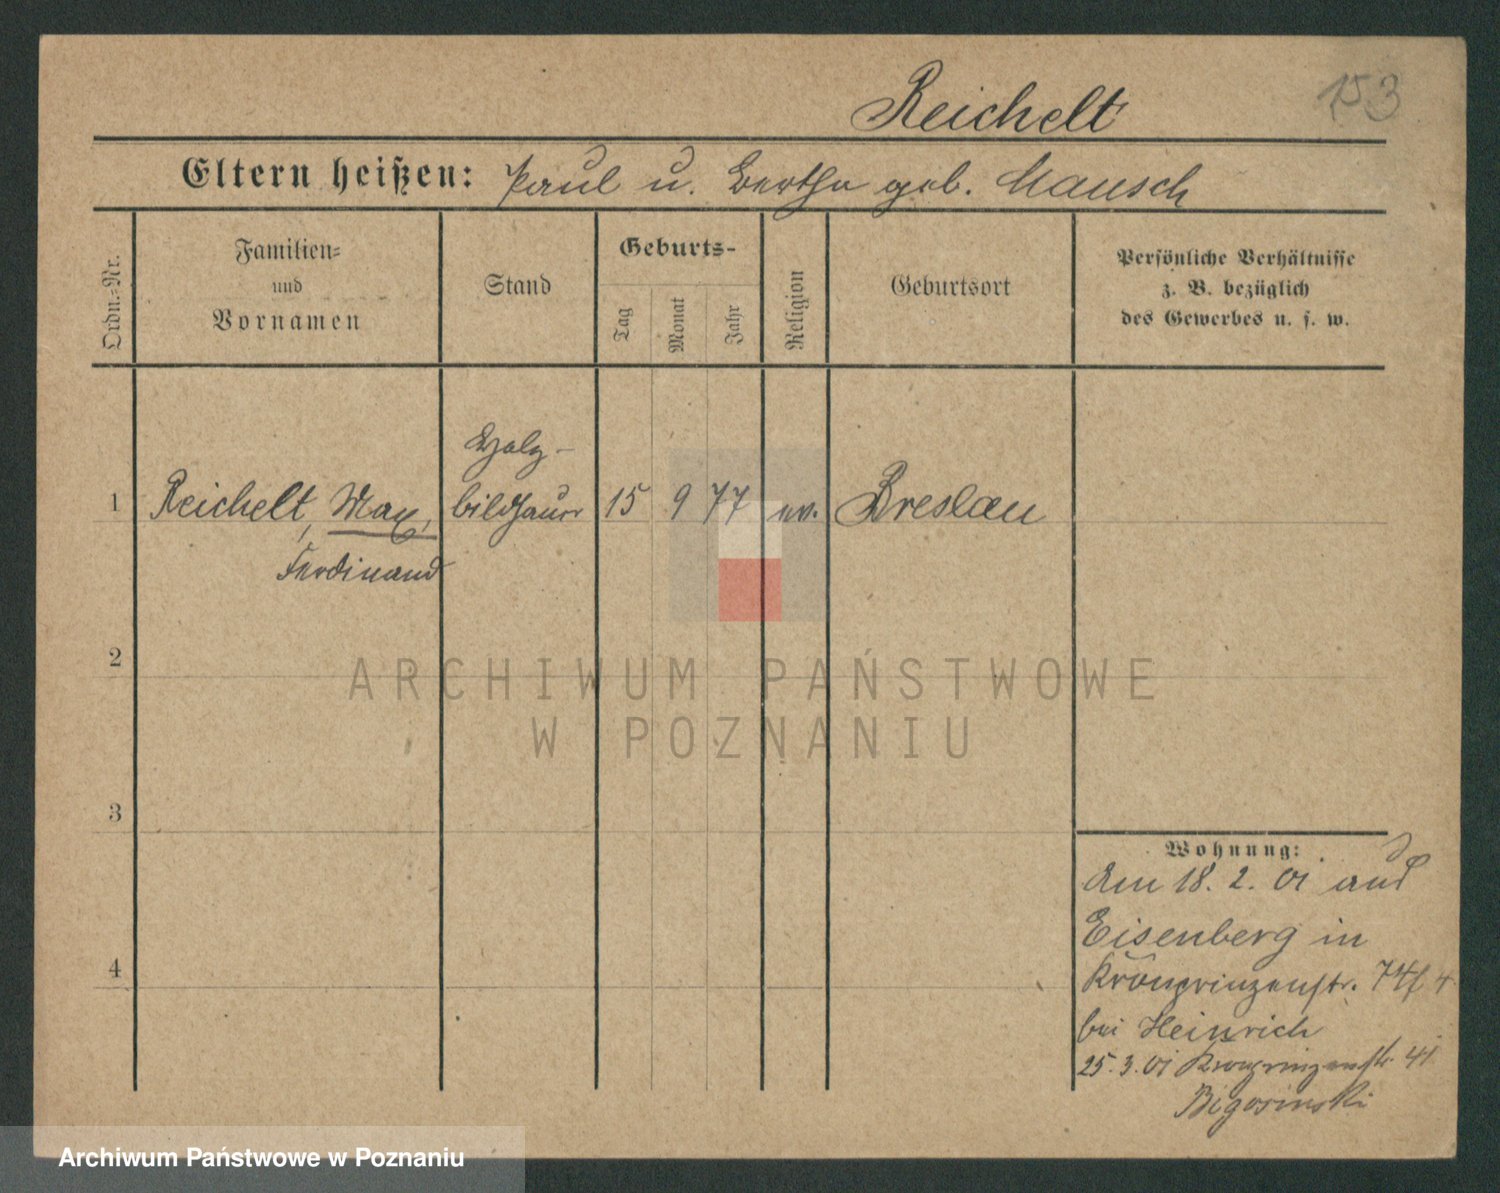 153
Reichelt
Eltern heißen: Paul u. Bertha geb. Mausch
Ordn.=Nr.
Familien=
und
Vornamen
Stand
Geburts-
Tag
Monat
Jahr
Religion
Geburtsort
Persönliche Verhältnisse
z. B. bezüglich
des Gewerbes u. s. w.
Holz-
1 Reichelt, Max, bildhauer 15 9 77 ev. Breslau
Ferdinand
2
ARCHIWUM PAŃSTWOWE
W POZNANIU
3
Wohnung:
Am 18. 2. 01 aus
Eisenberg in
4
Kronprinzenstr.
bei Heinrich
25. 3. 01 Kronprinzenstr. 41
Archiwum Państwowe w Poznaniu